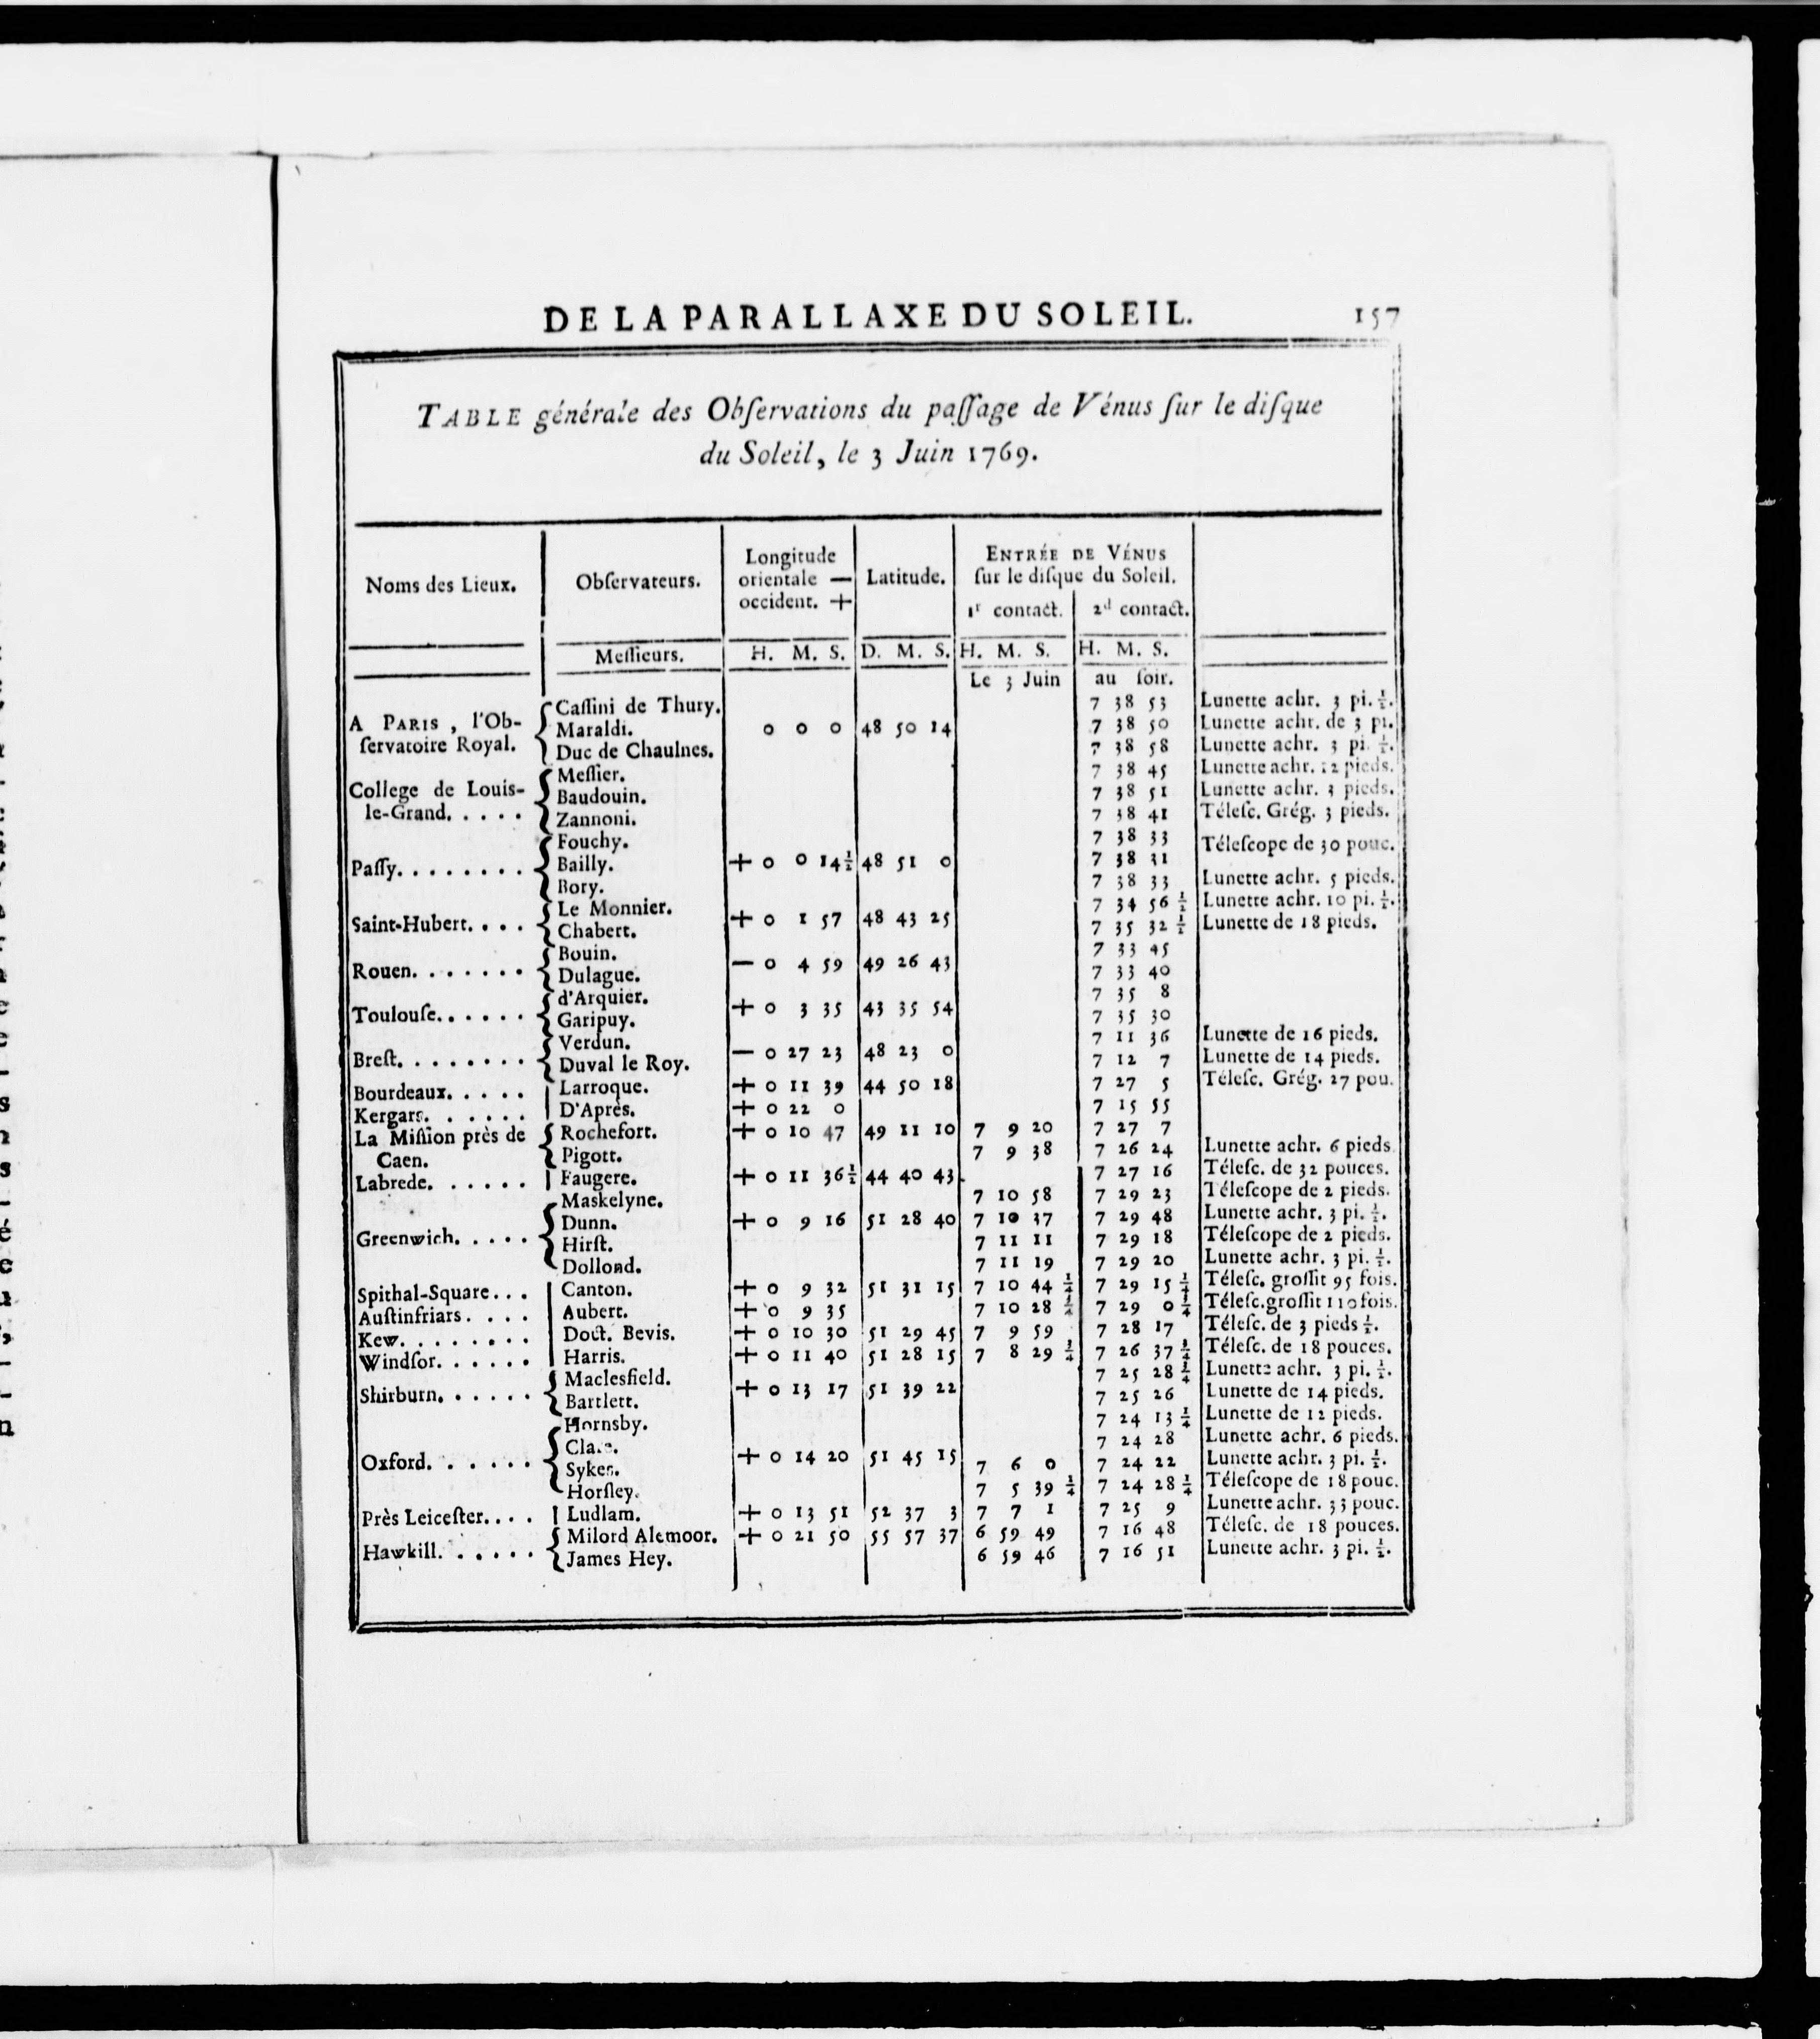 DE LA PARALLAXE DU SOLEIL. 157
TABLE générale des Obſervations du paſſage de Vénus ſur le diſque
du Soleil, le 3 Juin 1769.
Noms des Lieux. Obſervateurs. Longitude orientale — occident. + Latitude. ENTRÉE DE VÉNUS ſur le diſque du Soleil.
1r contact. 2d contact.
Meſſieurs. H. M. S. D. M. S. H. M. S. H. M. S.
Le 3 Juin au ſoir.
Caſſini de Thury. 7 38 53 Lunette achr. 3 pi. ½.
A PARIS, l'Ob- Maraldi. 0 0 0 48 50 14 7 38 50 Lunette achr. de 3 pi.
ſervatoire Royal. Duc de Chaulnes. 7 38 58 Lunette achr. 3 pi. ½.
Meſſier. 7 38 45 Lunette achr. 12 pieds.
College de Louis- Baudouin. 7 38 51 Lunette achr. 3 pieds.
le-Grand. . . . . Zannoni. 7 38 41 Téleſc. Grég. 3 pieds.
Fouchy. 7 38 33
Paſſy. . . . . . . . Bailly. + 0 0 14½ 48 51 0 7 38 31 Téleſcope de 30 pouc.
Bory. 7 38 33 Lunette achr. 5 pieds.
Le Monnier. 7 34 56½ Lunette achr. 10 pi. ½.
Saint-Hubert. . . . Chabert. + 0 1 57 48 43 25 7 35 32½ Lunette de 18 pieds.
Bouin. 7 33 45
Rouen. . . . . . . Dulague. — 0 4 59 49 26 43 7 33 40
d'Arquier. 7 35 8
Toulouſe. . . . . . Garipuy. + 0 3 35 43 35 54 7 35 30
Verdun. 7 11 36 Lunette de 16 pieds.
Breſt. . . . . . . . Duval le Roy. — 0 27 23 48 23 0 7 12 7 Lunette de 14 pieds.
Bourdeaux. . . . . Larroque. + 0 11 39 44 50 18 7 27 5 Téleſc. Grég. 27 pou.
Kergars. . . . . . D'Après. + 0 22 0 7 15 55
La Miſſion près de Rochefort. + 0 10 47 49 11 10 7 9 20 7 27 7
Caen. Pigott. 7 9 38 7 26 24 Lunette achr. 6 pieds
Labrede. . . . . . Faugere. + 0 11 36½ 44 40 43. 7 27 16 Téleſc. de 32 pouces.
Maskelyne. 7 10 58 7 29 23 Téleſcope de 2 pieds.
Dunn. + 0 9 16 51 28 40 7 10 37 7 29 48 Lunette achr. 3 pi. ½.
Greenwich. . . . . Hirſt. 7 11 11 7 29 18 Téleſcope de 2 pieds.
Dollond. 7 11 19 7 29 20 Lunette achr. 3 pi. ½.
Spithal-Square. . . Canton. + 0 9 32 51 31 15 7 10 44 7 29 15 Téleſc. groſſit 95 fois.
Auſtinfriars. . . . Aubert. + 0 9 35 7 10 28 7 29 0 Téleſc. groſſit 110 fois.
Kew. . . . . . . . Doct. Bevis. + 0 10 30 51 29 45 7 9 59 7 28 17 Téleſc. de 3 pieds ½.
Windſor. . . . . . Harris. + 0 11 40 51 28 15 7 8 29 7 26 37 Téleſc. de 18 pouces.
Maclesfield. 7 25 28 Lunette achr. 3 pi. ½.
Shirburn. . . . . . Bartlett. + 0 13 17 51 39 22 7 25 26 Lunette de 14 pieds.
Hornsby. 7 24 13 Lunette de 12 pieds.
7 24 28 Lunette achr. 6 pieds.
Oxford. . . . . . Sykes. + 0 14 20 51 45 15 7 6 0 7 24 22 Lunette achr. 3 pi. ½.
Horſley. 7 5 39 7 24 28 Téleſcope de 18 pouc.
Près Leiceſter. . . . Ludlam. + 0 13 51 52 37 3 7 7 1 7 25 9 Lunette achr. 33 pouc.
Milord Alemoor. + 0 21 50 55 57 37 6 59 49 7 16 48 Téleſc. de 18 pouces.
Hawkill. . . . . . James Hey. 6 59 46 7 16 51 Lunette achr. 3 pi. ½.